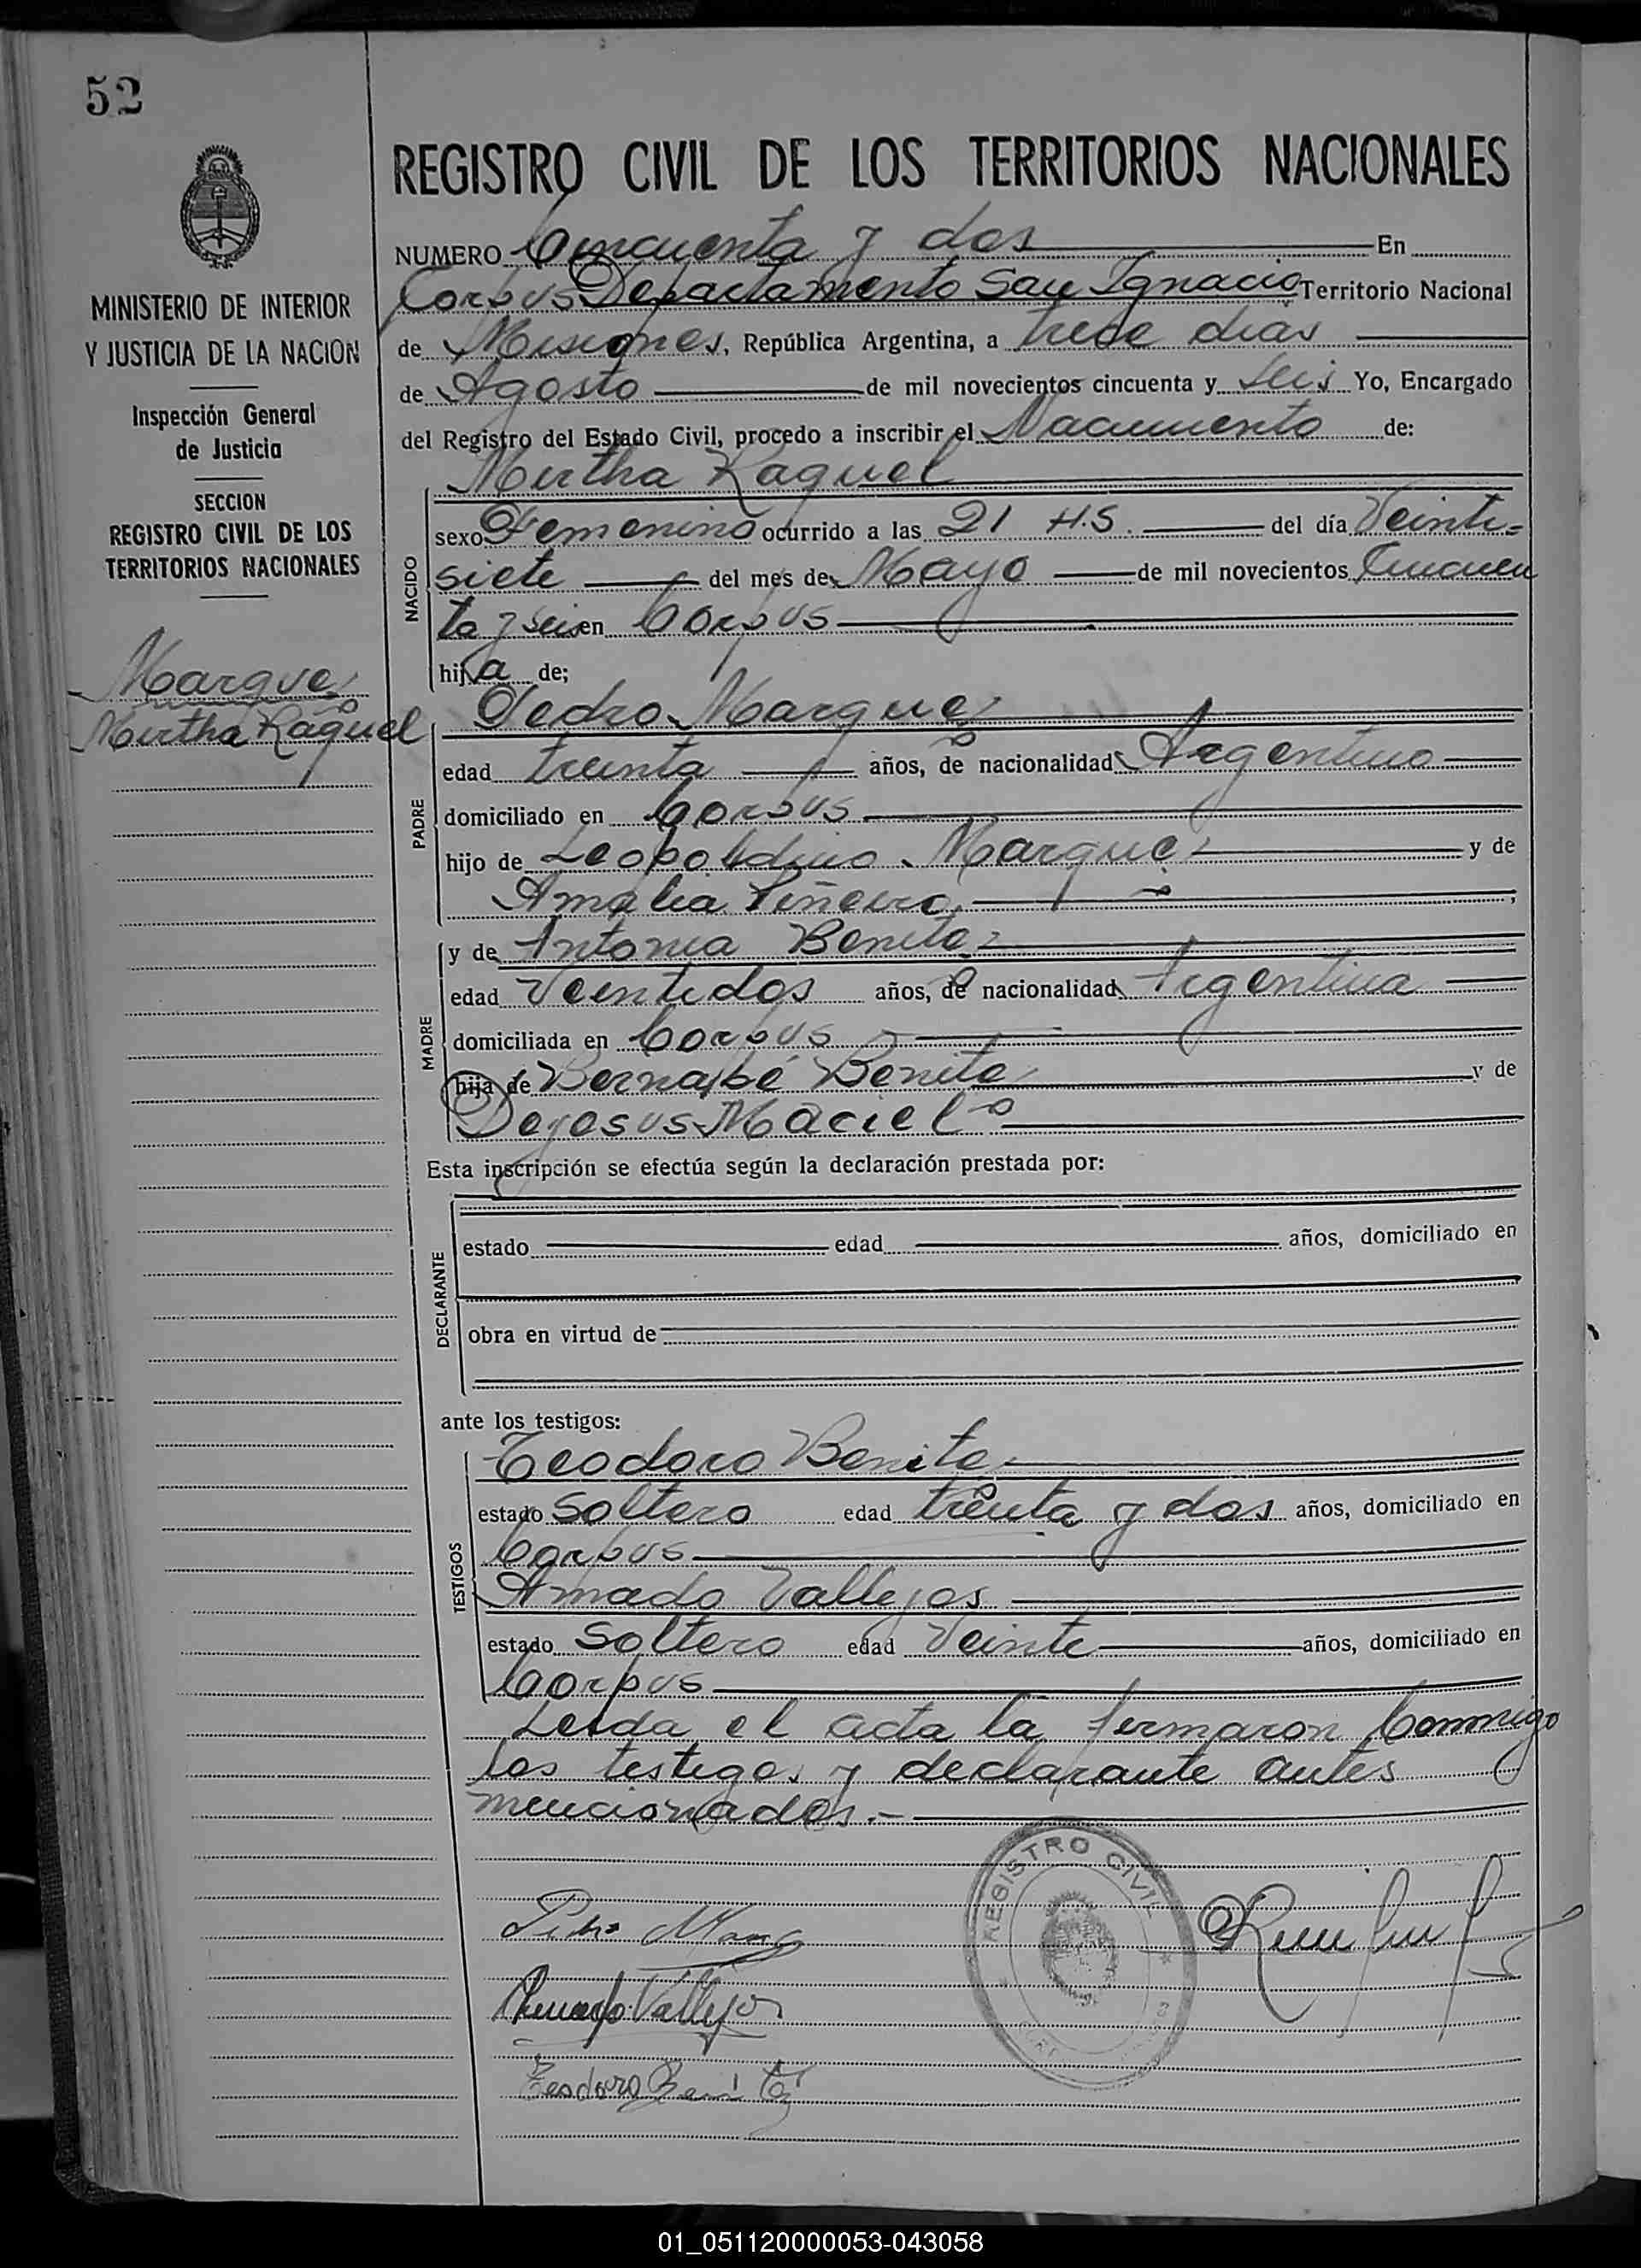 52
MINISTERIO DE INTERIOR
Y JUSTICIA DE LA NACION
Inspección General
de Justicia
SECCION
REGISTRO CIVIL DE LOS
TERRITORIOS NACIONALES
Marquez
Mirtha Raquel
REGISTRO CIVIL DE LOS TERRITORIOS NACIONALES
NUMERO Cincuenta y dos En
Corpus Departamento San Ignacio Territorio Nacional
de Misiones, República Argentina, a trece dias
de Agosto de mil novecientos cincuenta y seis Yo, Encargado
del Registro del Estado Civil, procedo a inscribir el Nacimiento de:
Mirtha Raquel
NACIDO
sexo Femenino ocurrido a las 21 H.S. del día Veinti-
siete del mes de Mayo de mil novecientos Cincuen
ta y seis en Corpus
hija de;
Pedro Marquez
PADRE
edad treinta años, de nacionalidad Argentino
domiciliado en Corpus
hijo de Leopoldino Marquez y de
Amalia Piñeiro ;
MADRE
y de Antonia Benitez
edad Veintidos años, de nacionalidad Argentina
domiciliada en Corpus
hija de Bernabé Benitez y de
Dejesus Maciel
Esta inscripción se efectúa según la declaración prestada por:
DECLARANTE
estado edad años, domiciliado en
obra en virtud de
ante los testigos:
TESTIGOS
Teodoro Benitez
estado Soltero edad treinta y dos años, domiciliado en
Corpus
Amado Vallejos
estado Soltero edad Veinte años, domiciliado en
Corpus
Leida el acta la firmaron Conmigo
los testigos y declarante antes
mencionados.-
REGISTRO CIVIL
Pedro Marq
Amado Vallejos
Teodoro Benitez
01_051120000053-043058